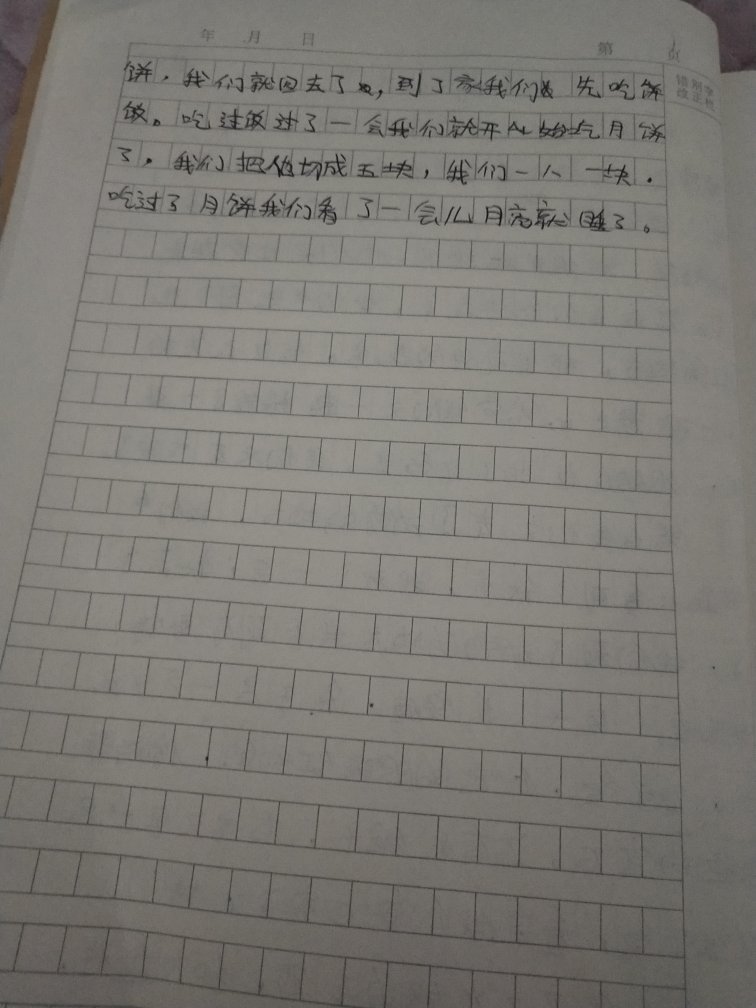 年 月 日 第 页
错别字
改正栏
饼，我们就回去了，到了家我们先吃饭
饭。吃过饭过了一会我们就开始吃月饼
了。我们把他切成五块，我们一人一块。
吃过了月饼我们看了一会儿月亮就睡了。